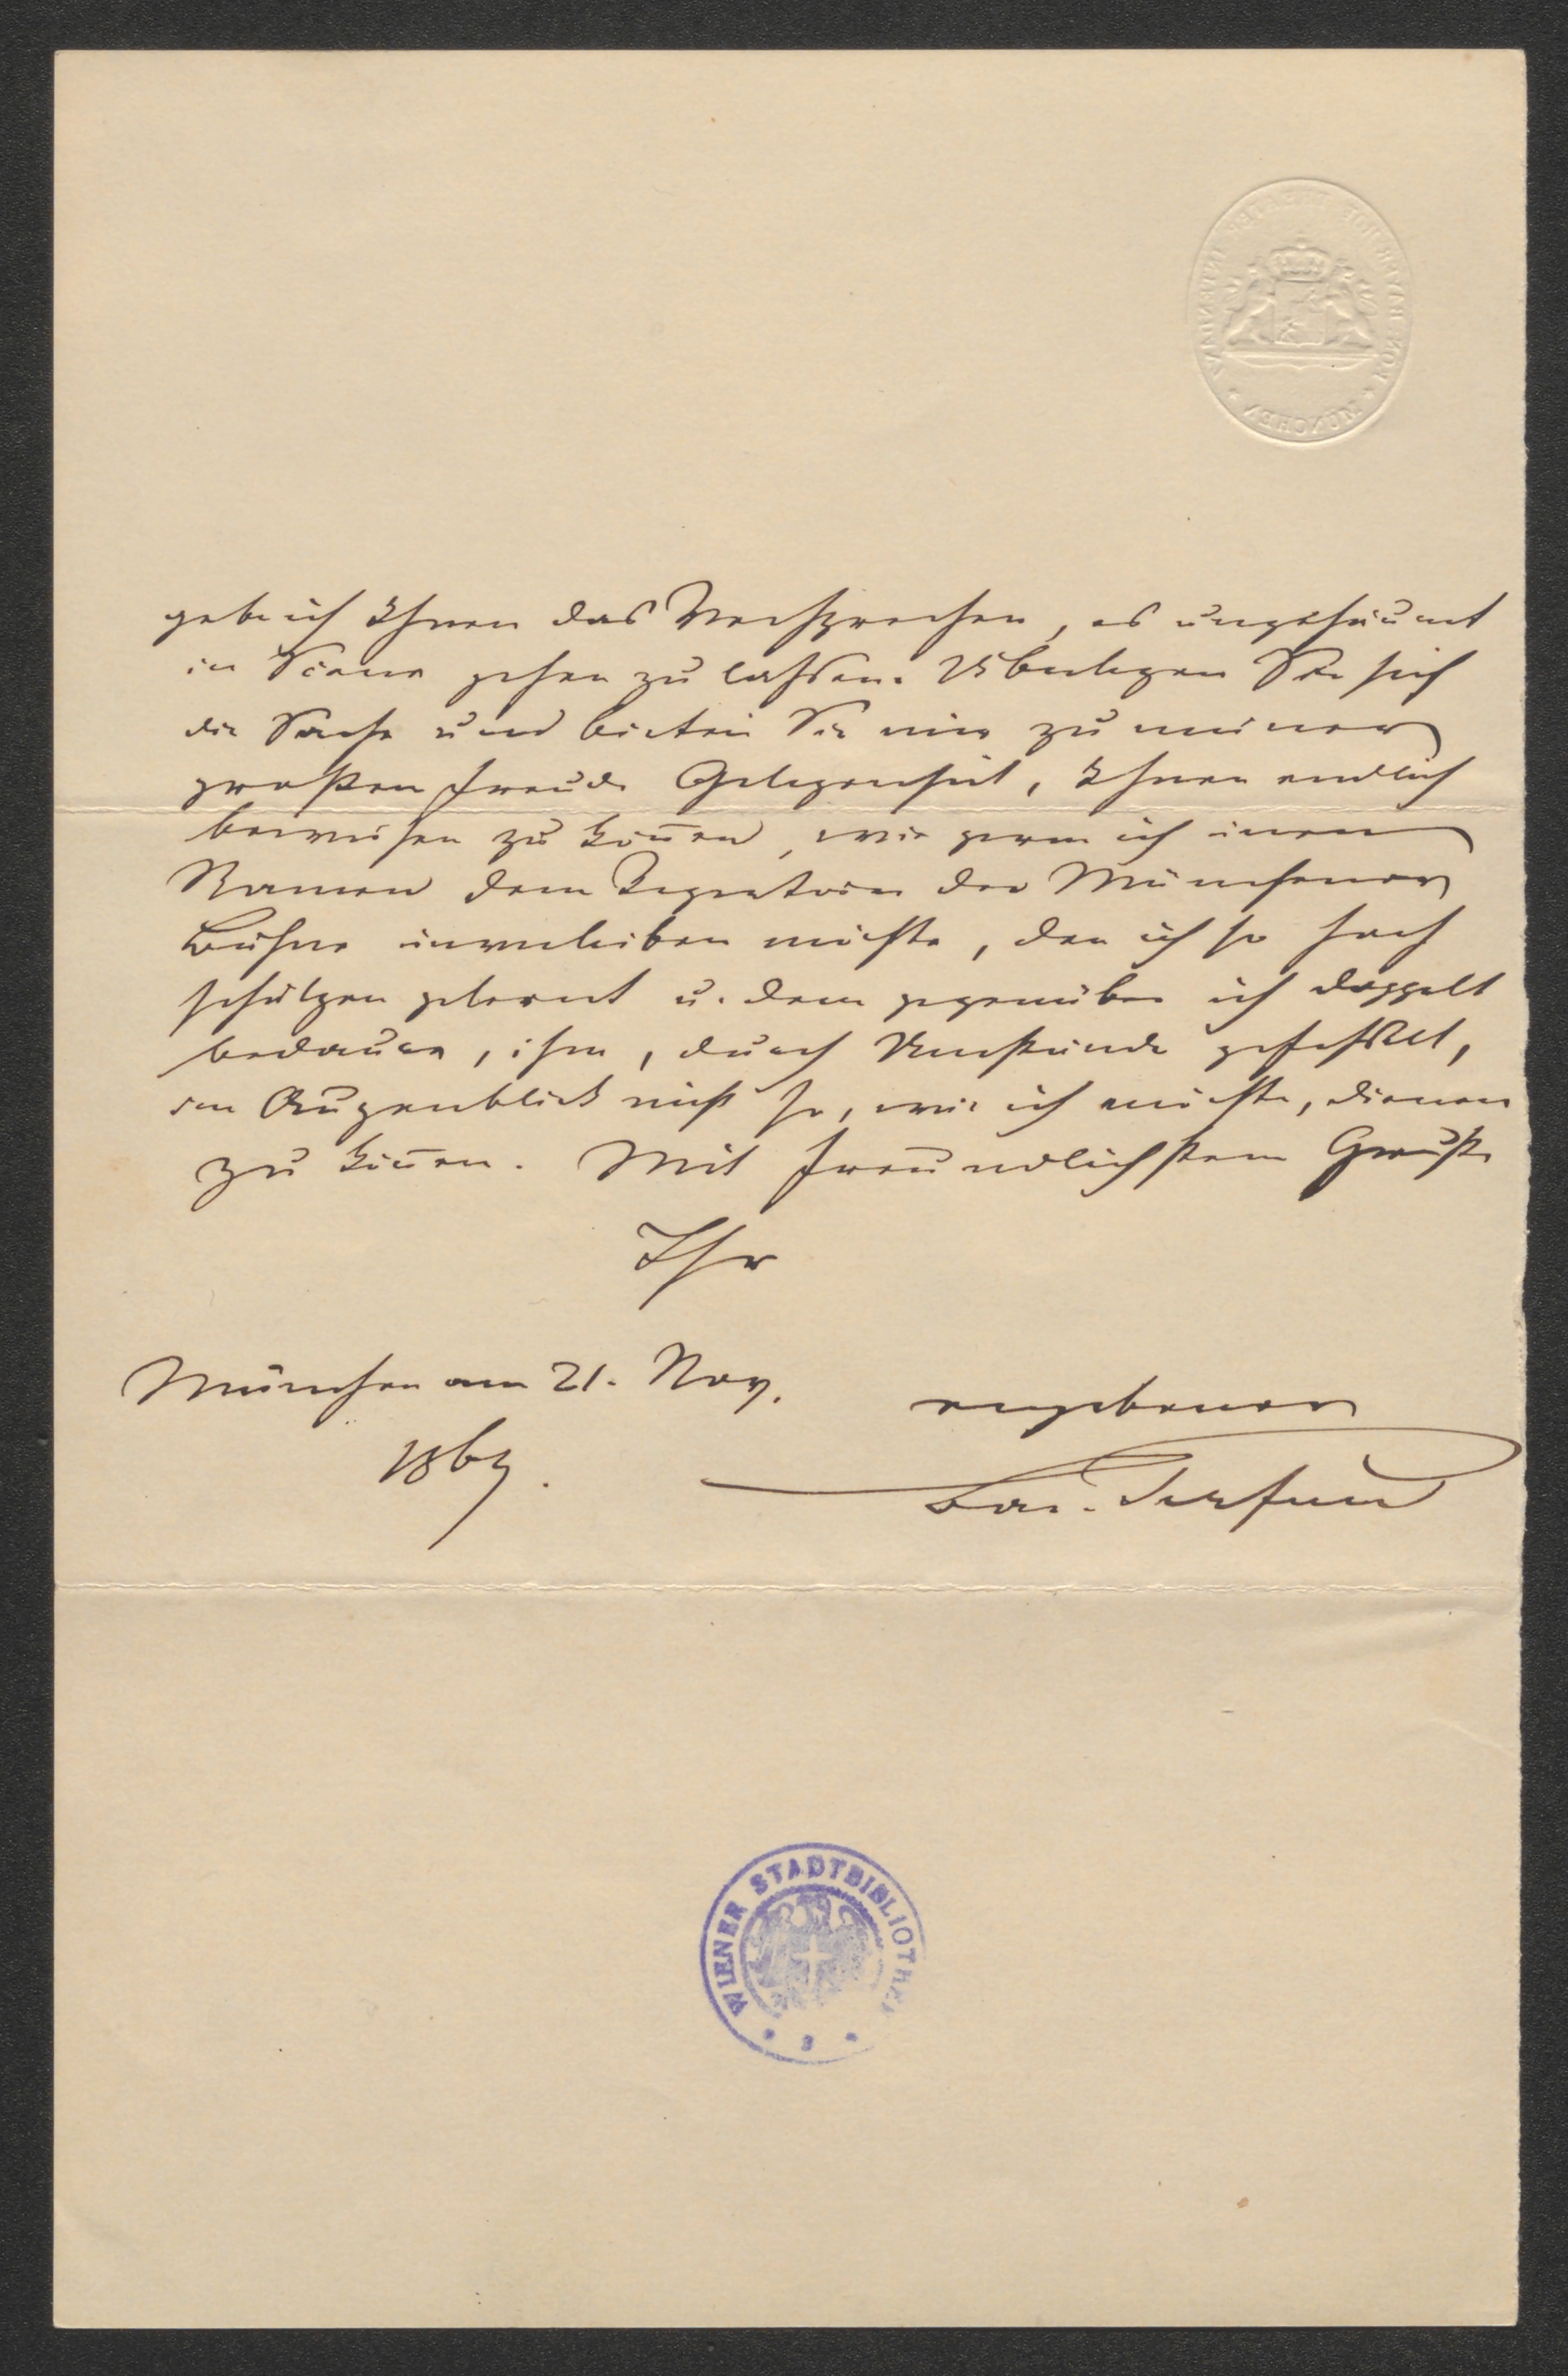 gebe ich Ihnen das Versprechen, es ungesäumt
in Scene gehen zu lassen. Überlegen Sie sich
die Sache und bieten Sie mir zu meiner
großen Freude Gelegenheit, Ihnen endlich
beweisen zu könen, wie gern ich einen
Namen dem Repertoir der Münchener
Bühne einverleiben möchte, den ich so hoch
schätzen gelernt u. dem gegenüber ich doppelt
bedauere, ihm, durch Umstände gefesselt,
im Augenblick nicht so, wie ich möchte, dienen
zu könen. Mit freundlichstem Gruße
Ihr
München am 21. Nov.
ergebener
186
KÖN. BAYER. HOF THEATER INTENDANZ
MÜNCHEN
WIENER STADTBIBLIOTHEK